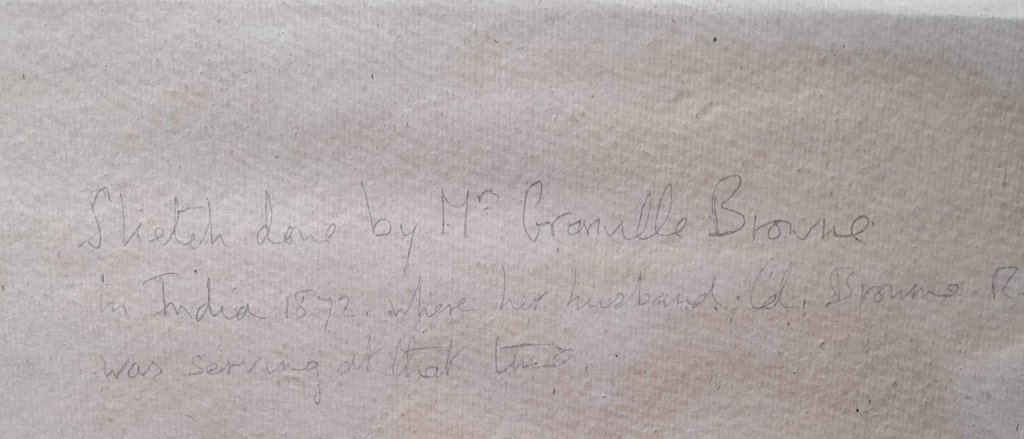 Sketch done by Mrs Granville Browne
in India 1872. where her husband, Col. Browne R.
was serving at that time.